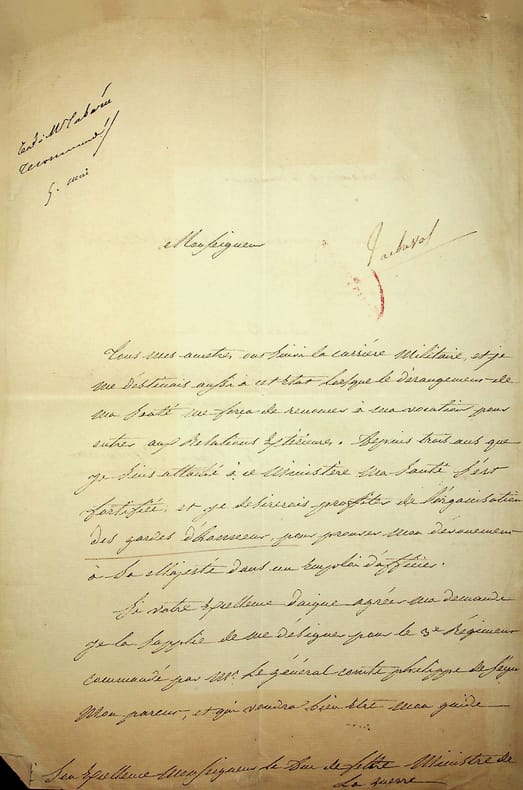 recommandé
5. mai
Monseigneur
Tous mes ancetres ont suivi la carriere Militaire, et je
me destinais aussi à cet Etat lorsque le derangement de
ma Santé me força de renoncer à ma vocation pour
entrer aux Relations Extérieures. Depuis trois ans que
je suis attaché à ce Ministère ma Santé s'est
fortifiée, et je desirerais profiter de l'organisation
des gardes d'honneur, pour prouver mon dévouement
à Sa Majesté dans un Emploi d'officier.
Si votre Excellence daigne agréer ma demande
je la supplie de me désigner pour le 3e Régiment
commandé par Mr. le général comte philippe de Ségur
Mon parent, et qui voudra bien être mon guide
Son Excellence Monseigneur le Duc de feltre Ministre de
La guerre